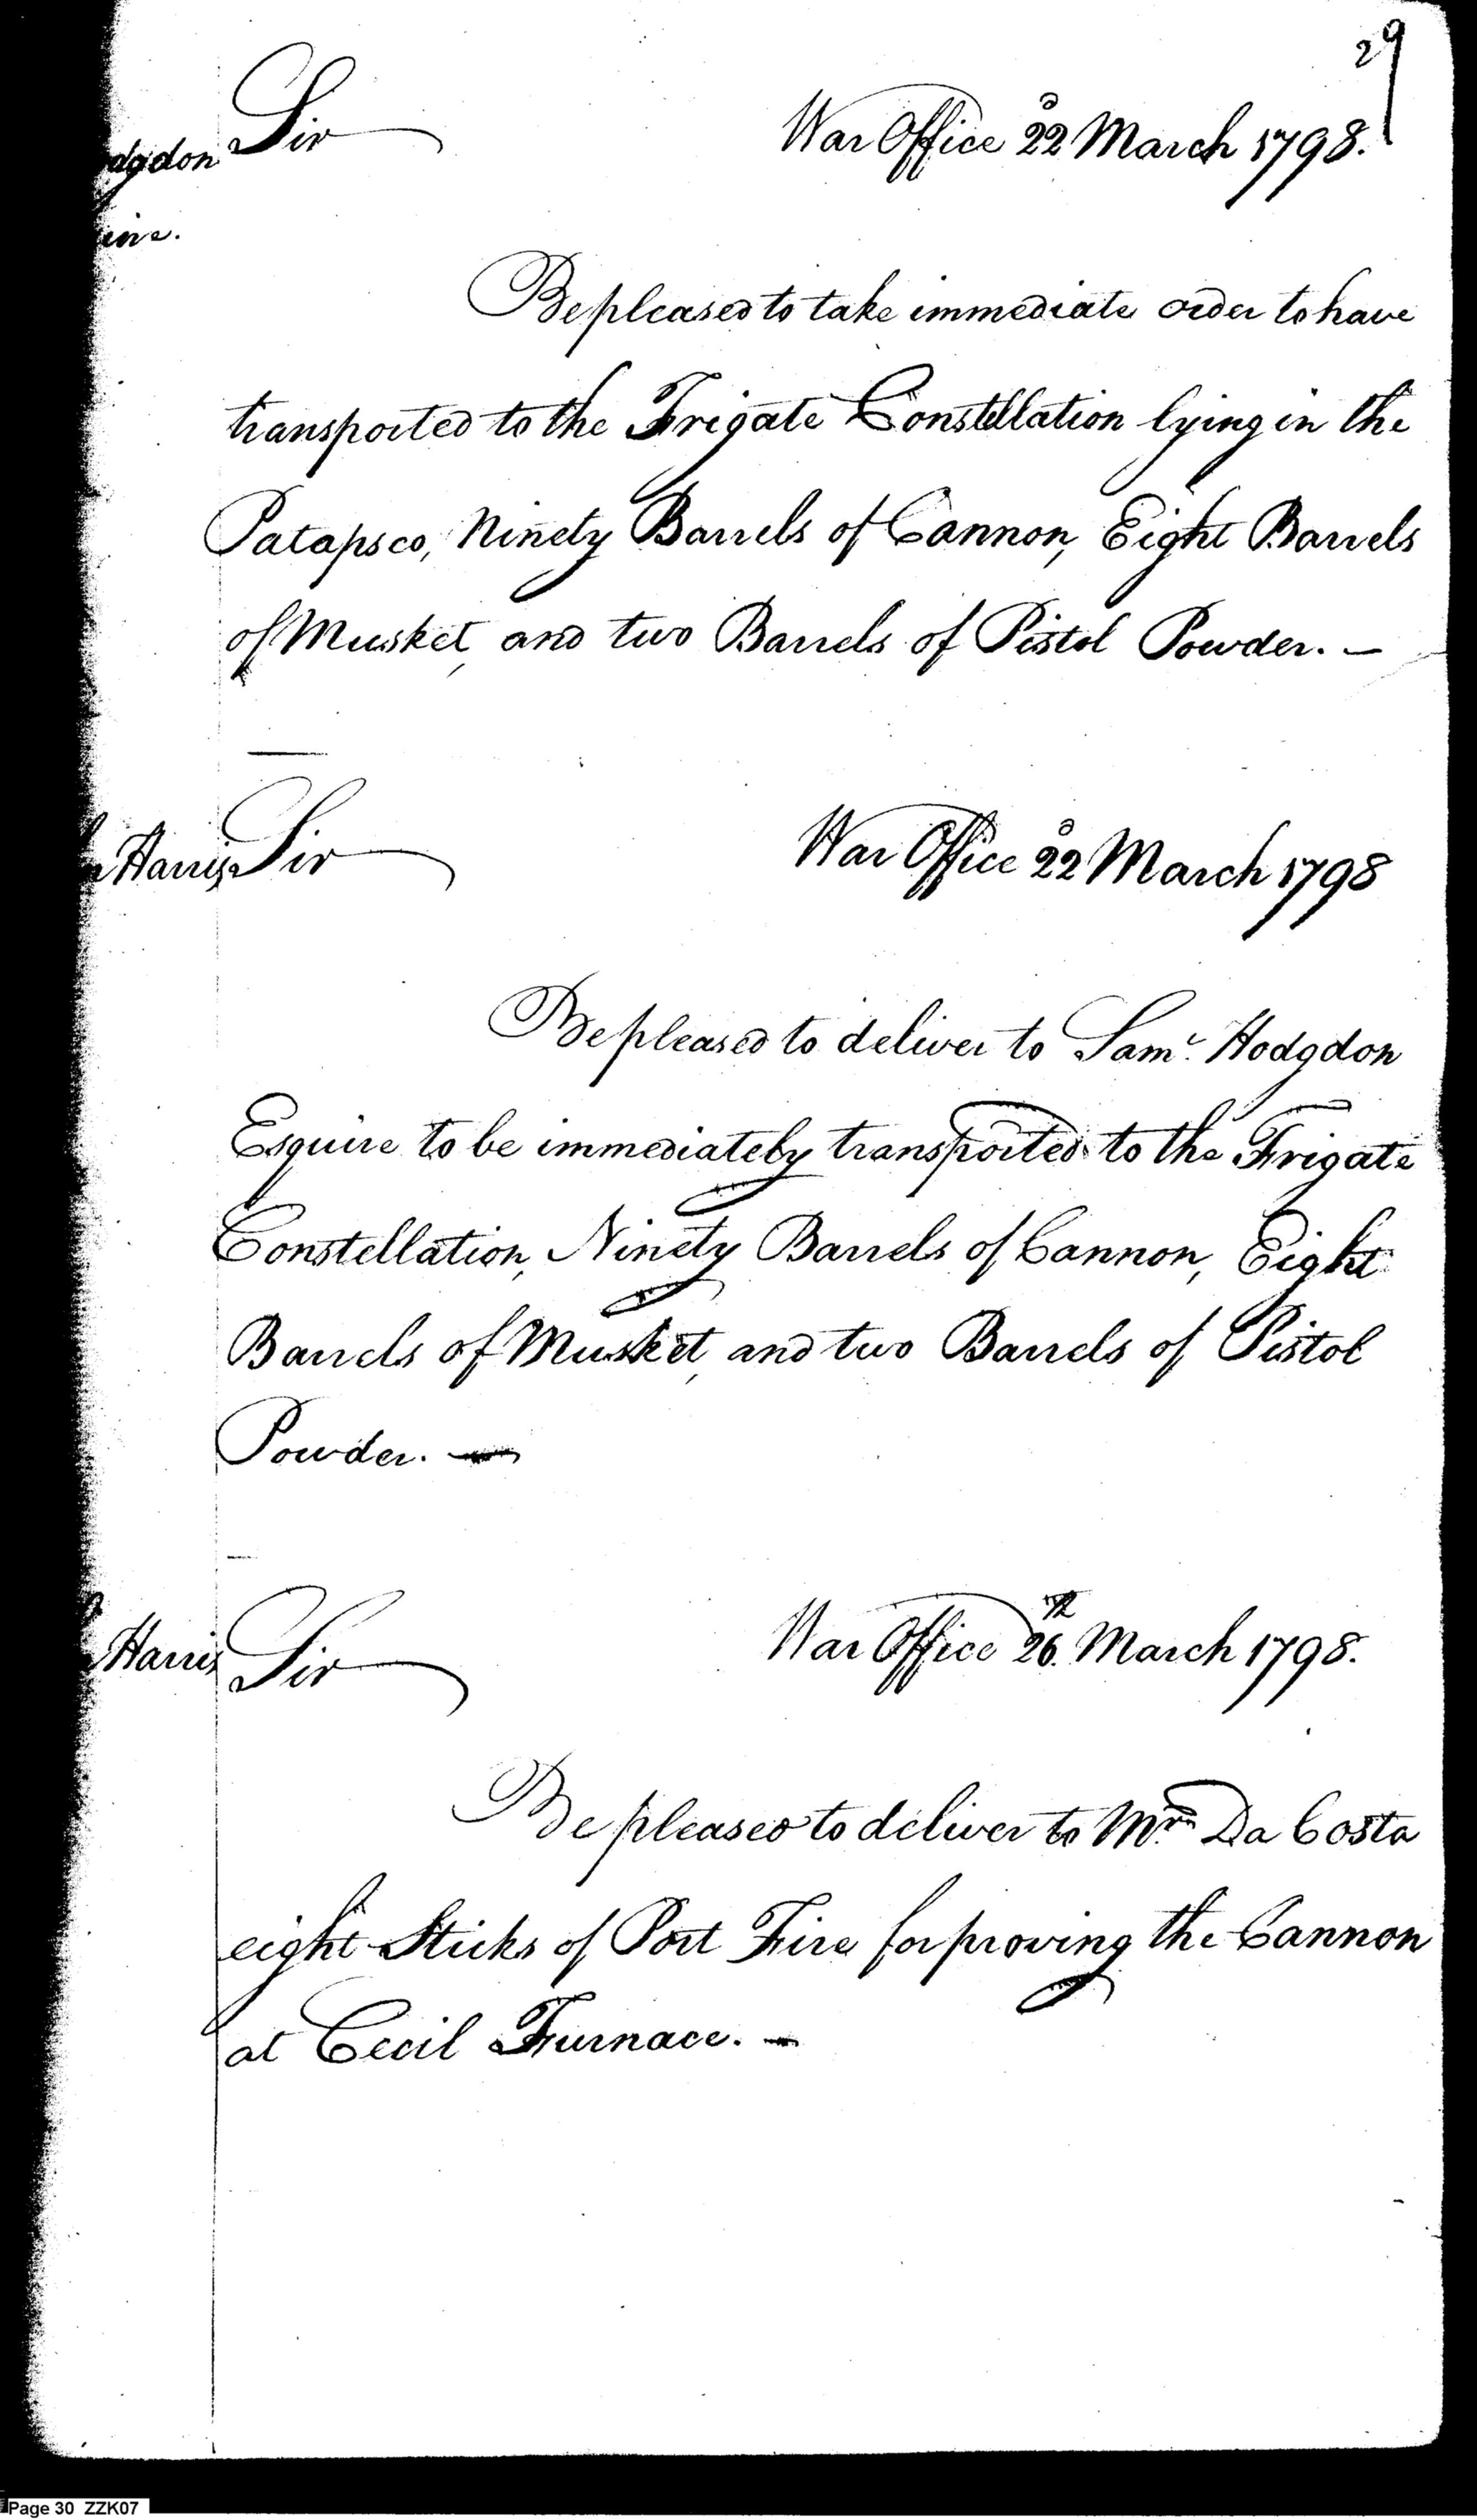 29
Sir War Office 22d March 1798.
Be pleased to take immediate order to have
transported to the Frigate Constellation lying in the
Patapsco, Ninety Barrels of Cannon, Eight Barrels
of Musket, and two Barrels of Pistol Powder. —
Harris Sir War Office 22d March 1798
Be pleased to deliver to Saml. Hodgdon
Esquire to be immediately transported to the Frigate
Constellation, Ninety Barrels of Cannon, Eight
Barrels of Musket, and two Barrels of Pistol
Powder. —
Harris Sir War Office 26th. March 1798.
Be pleased to deliver to Mr. Da Costa
eight Sticks of Port Fire for proving the Cannon
at Cecil Furnace. —
Page 30 ZZK07